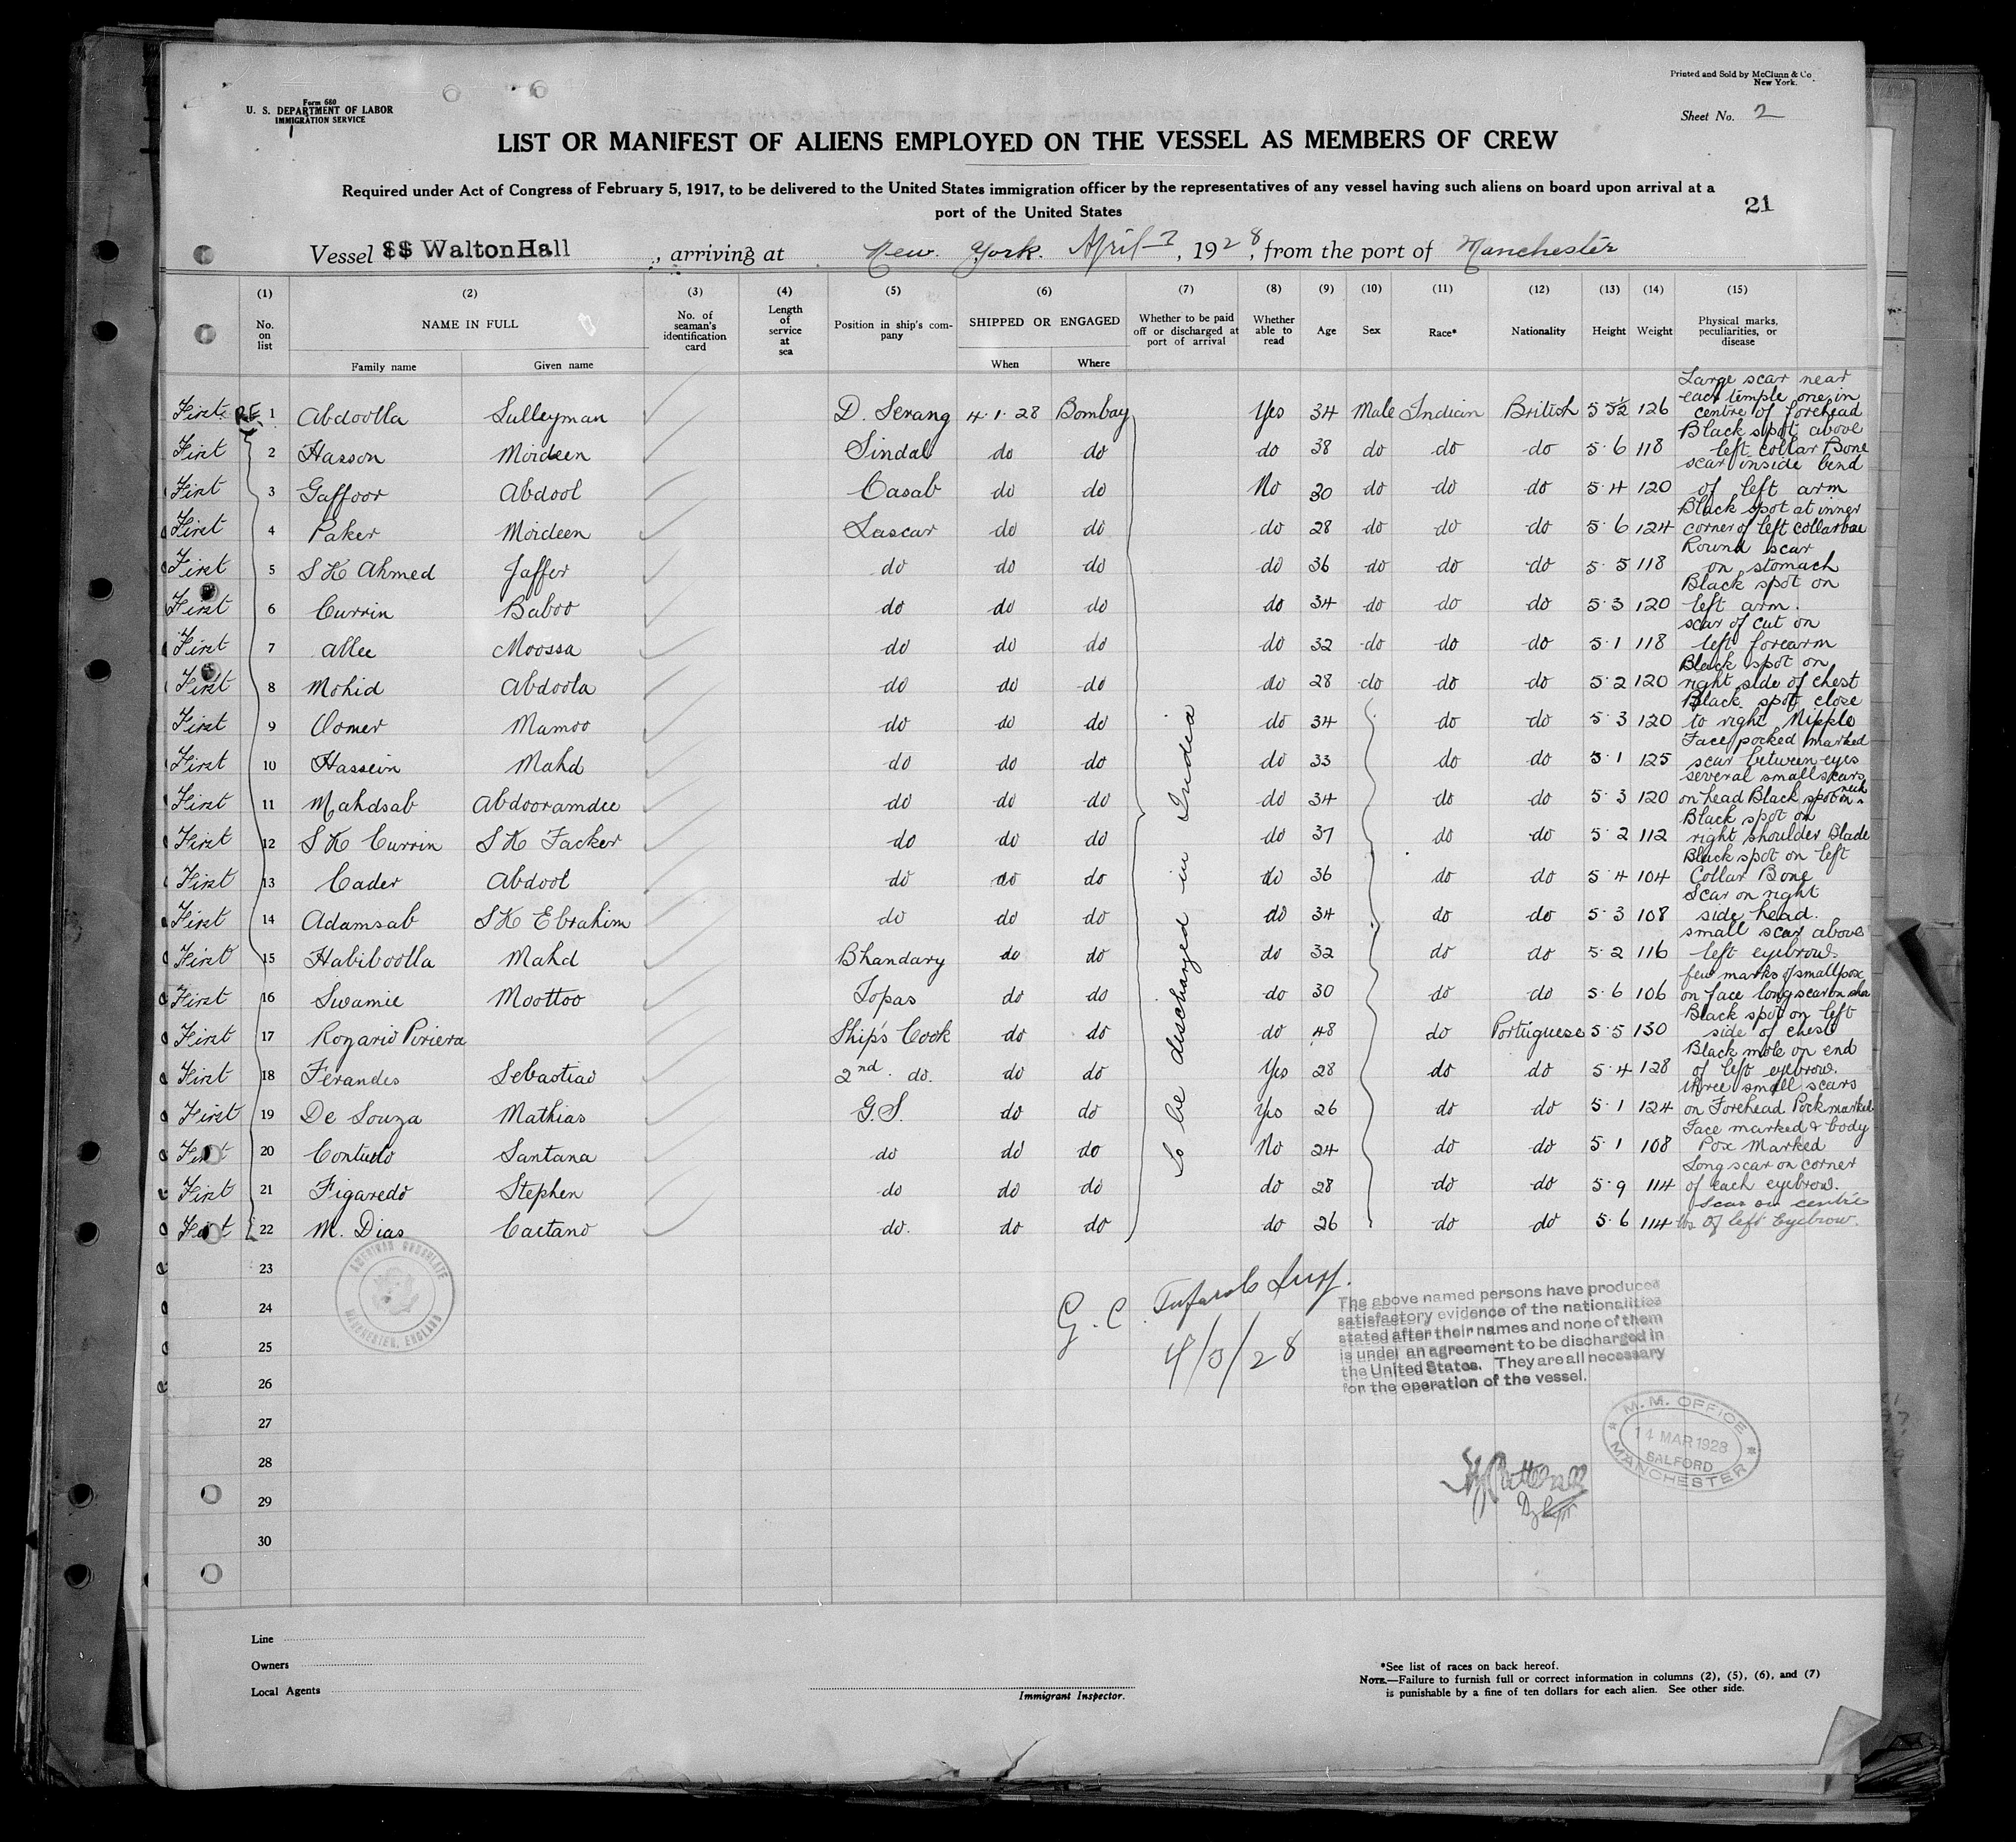 Form 680
U. S. DEPARTMENT OF LABOR
IMMIGRATION SERVICE
Printed and Sold by McClunn & Co.
New York.
Sheet No. 2
LIST OR MANIFEST OF ALIENS EMPLOYED ON THE VESSEL AS MEMBERS OF CREW
Required under Act of Congress of February 5, 1917, to be delivered to the United States immigration officer by the representatives of any vessel having such aliens on board upon arrival at a
port of the United States
21
Vessel SS WaltonHall, arriving at New York. April 3, 1928, from the port of Manchester
(1) No. on list
(2) NAME IN FULL
Family name Given name
(3) No. of seaman's identification card
(4) Length of service at sea
(5) Position in ship's company
(6) SHIPPED OR ENGAGED
When Where
(7) Whether to be paid off or discharged at port of arrival
(8) Whether able to read
(9) Age
(10) Sex
(11) Race*
(12) Nationality
(13) Height
(14) Weight
(15) Physical marks, peculiarities, or disease
First 1 Abdoolla Sulleyman D. Serang 4·1·28 Bombay Yes 34 Male Indian British 5 5½ 126 Large scar near each temple one in centre of forehead
First 2 Hasson Moideen Sindal do do do 38 do do do 5·6 118 Black spot above left collar Bone
First 3 Gaffoor Abdool Casab do do No 30 do do do 5·4 120 scar inside bend of left arm
First 4 Paker Moideen Lascar do do do 28 do do do 5·6 124 Black spot at inner corner of left collarbone
First 5 S K Ahmed Jaffer do do do do 36 do do do 5·5 118 Round scar on stomach
First 6 Currin Baboo do do do do 34 do do do 5·3 120 Black spot on left arm.
First 7 Allee Moossa do do do do 32 do do do 5·1 118 scar of cut on left forearm
First 8 Mohid Abdoola do do do do 28 do do do 5·2 120 Black spot on right side of chest
First 9 Oomer Mamoo do do do do 34 do do 5·3 120 Black spot close to right Nipple
First 10 Hassein Mahd do do do do 33 do do 5·1 125 Face pocked marked scar between eyes
First 11 Mahdsab Abdooramdee do do do do 34 do do 5·3 120 several small scars on head Black spot on neck
First 12 S K Currin S K Facker do do do do 37 do do 5·2 112 Black spot on right shoulder Blade
First 13 Cader Abdool do do do do 36 do do 5·4 104 Black spot on left Collar Bone
First 14 Adamsab S K Ebrahim do do do do 34 do do 5·3 108 Scar on right side head.
First 15 Habiboolla Mahd Bhandary do do do 32 do do 5·2 116 small scar above left eyebrow.
First 16 Swamie Moottoo Topas do do do 30 do do 5·6 106 few marks of smallpox on face long scar on
First 17 Rozario Piriera Ship's Cook do do do 48 do Portuguese 5·5 130 Black spot on left side of chest
First 18 Ferandes Sebastiao 2nd. do. do do Yes 28 do do 5·4 128 Black mole on end of left eyebrow.
First 19 De Souza Mathias G.S. do do Yes 26 do do 5·1 124 three small scars on Forehead Pock marked
First 20 Santana do do do No 24 do do 5·1 108 Face marked & body Pox Marked
First 21 Figaredo Stephen do do do do 28 do do 5·9 114 Long scar on corner of each eyebrow.
First 22 M. Dias Caetano do. do do do 26 do do 5·6 114 lbs Scar on centre of left Eyebrow.
To be discharged in India
23
24
25
26
27
28
29
30
AMERICAN CONSULATE
MANCHESTER, ENGLAND
G. C.
4/3/28
The above named persons have produced
satisfactory evidence of the nationalities
stated after their names and none of them
is under an agreement to be discharged in
the United States. They are all necessary
for the operation of the vessel.
M. M. OFFICE
14 MAR 1928
SALFORD
MANCHESTER
Line
Owners
Local Agents
Immigrant Inspector.
*See list of races on back hereof.
NOTE.—Failure to furnish full or correct information in columns (2), (5), (6), and (7)
is punishable by a fine of ten dollars for each alien. See other side.